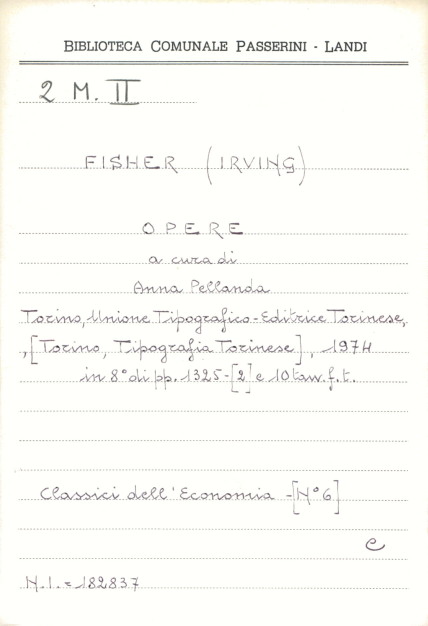 BIBLIOTECA COMUNALE PASSERINI - LANDI
2 M. II
FISHER (IRVING)
OPERE
a cura di
Anna Pellanda
Torino, Unione Tipografico-Editrice Torinese,
,[Torino, Tipografia Torinese], 1974
in 8° di pp. 1325-[2] e 10 tavv. f. t.
Classici dell'Economia -[N° 6]
e
N.I. = 182837